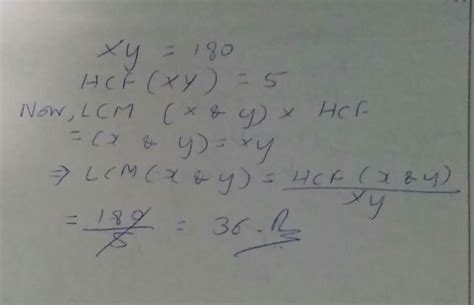 xy = 180
HCF (XY) = 5
Now, LCM (x & y) x HCF
= (x & y) = xy
⇒ LCM (x & y) = HCF (x & y) / xy
= 180 / 5 = 36.